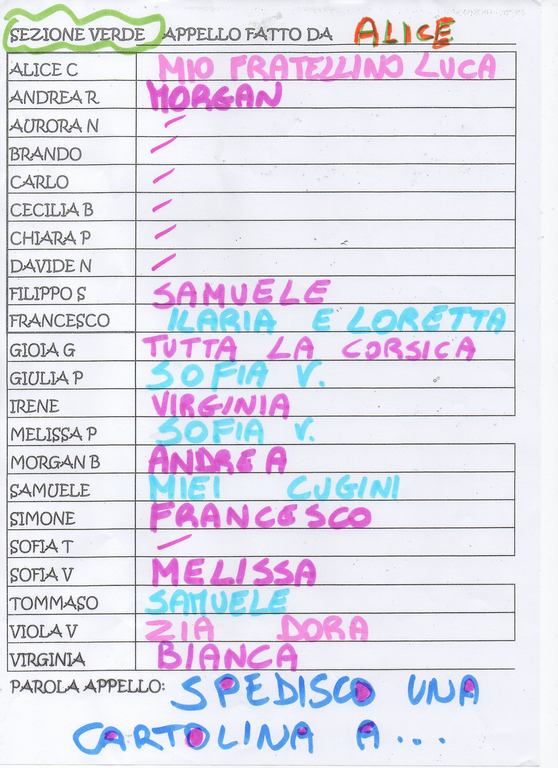 SEZIONE VERDE APPELLO FATTO DA ALICE
ALICE C MIO FRATELLINO LUCA
ANDREA R MORGAN
AURORA N /
BRANDO /
CARLO /
CECILIA B /
CHIARA P /
DAVIDE N /
FILIPPO S SAMUELE
FRANCESCO ILARIA E LORETTA
GIOIA G TUTTA LA CORSICA
GIULIA P SOFIA V.
IRENE VIRGINIA
MELISSA P SOFIA V.
MORGAN B ANDREA
SAMUELE MIEI CUGINI
SIMONE FRANCESCO
SOFIA T /
SOFIA V MELISSA
TOMMASO SAMUELE
VIOLA V ZIA DORA
VIRGINIA BIANCA
PAROLA APPELLO: SPEDISCO UNA
CARTOLINA A...